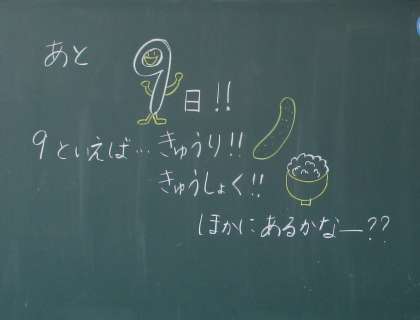 あと9日!!
9といえば…きゅうり!!
きゅうしょく!!
ほかにあるかなー??